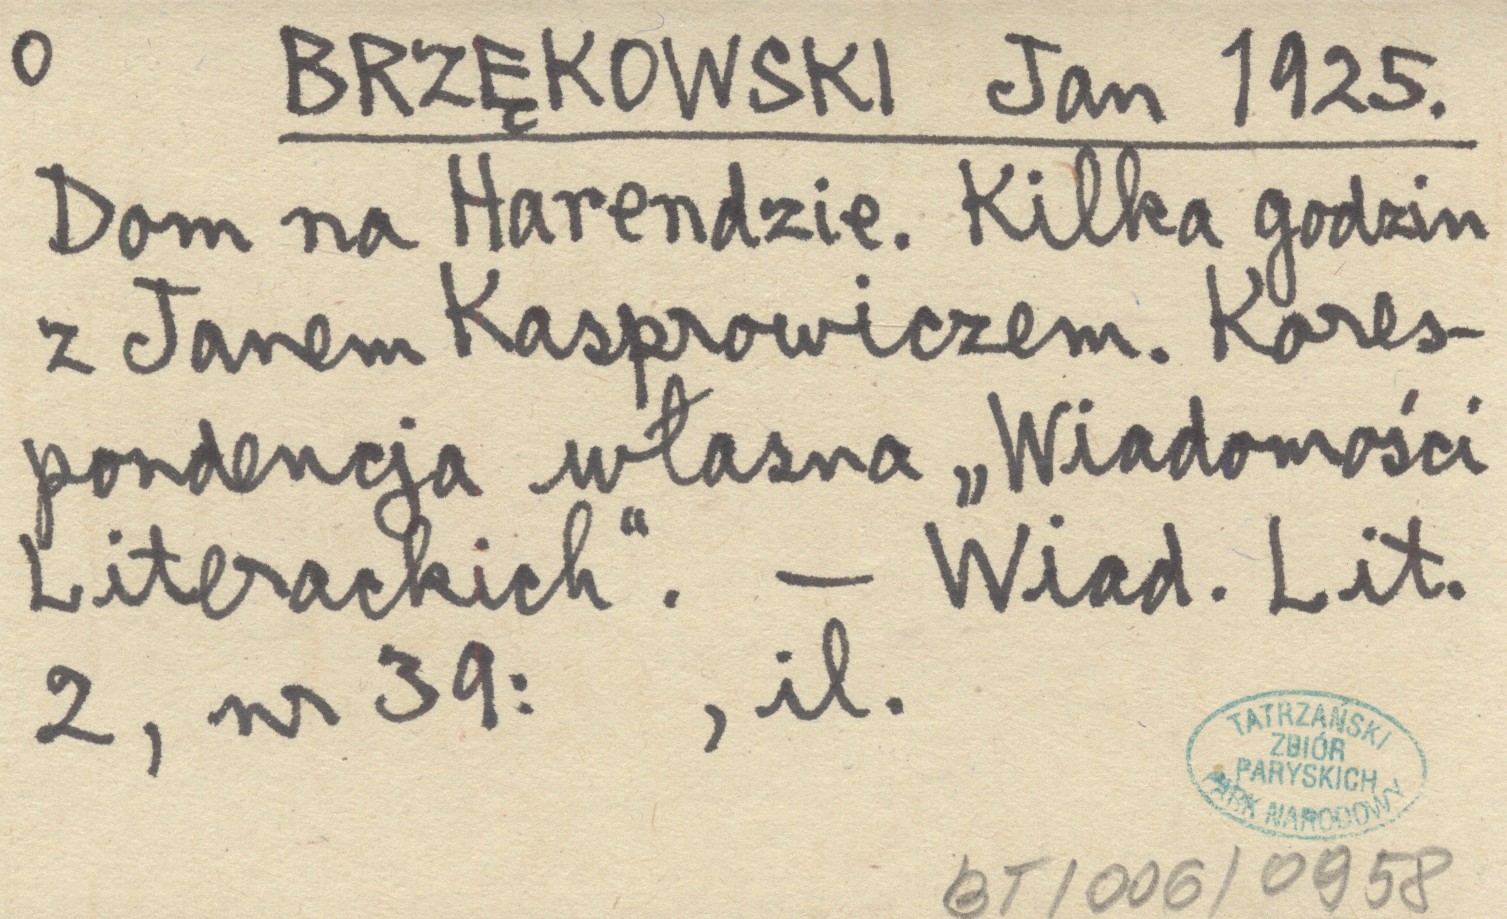 o BRZĘKOWSKI Jan 1925.
Dom na Harendzie. Kilka godzin
z Janem Kasprowiczem. Kores-
pondencja własna „Wiadomości
Literackich“. — Wiad. Lit.
2, nr 39: , il.
TATRZAŃSKI
ZBIÓR
PARYSKICH
PARK NARODOWY
BT/006/0958